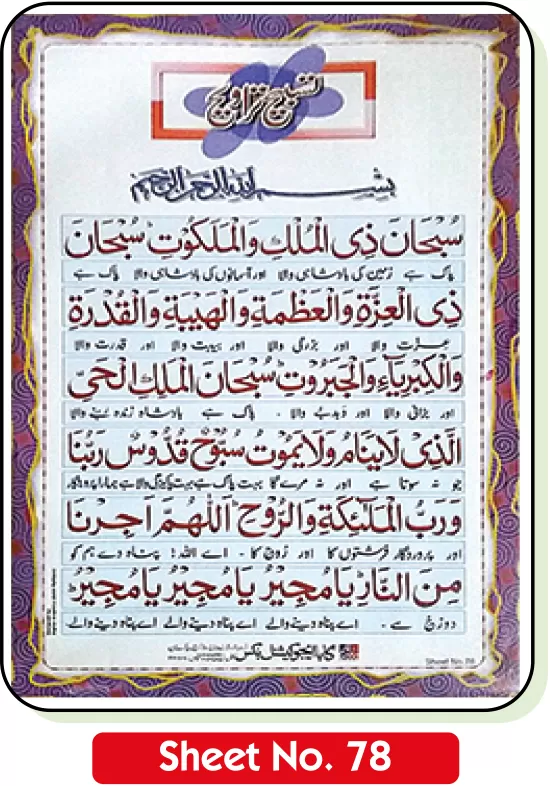 تسبیح تراویح
بِسْمِ اللهِ الرَّحْمٰنِ الرَّحِيْمِ
سُبْحَانَ ذِی الْمُلْكِ وَالْمَلَكُوْتِ سُبْحَانَ
پاک ہے زمین کی بادشاہی والا اور آسمانوں کی بادشاہی والا پاک ہے
ذِی الْعِزَّةِ وَالْعَظْمَةِ وَالْهَيْبَةِ وَالْقُدْرَةِ
عزت والا اور بزرگی والا اور ہیبت والا اور قدرت والا
وَالْكِبْرِيَآءِ وَالْجَبَرُوْتِ سُبْحَانَ الْمَلِكِ الْحَیِّ
اور بڑائی والا اور دبدبے والا ۔ پاک ہے بادشاہ زندہ رہنے والا
الَّذِیْ لَا يَنَامُ وَلَا يَمُوْتُ سُبُّوْحٌ قُدُّوْسٌ رَبُّنَا
جو نہ سوتا ہے اور نہ مرے گا بہت پاک ہے بہت پاکیزگی والا ہے ہمارا پروردگار
وَرَبُّ الْمَلٰٓئِكَةِ وَالرُّوْحِ اَللّٰهُمَّ اَجِرْنَا
اور پروردگار فرشتوں کا اور روح کا ۔ اے اللہ! پناہ دے ہم کو
مِنَ النَّارِ يَا مُجِيْرُ يَا مُجِيْرُ يَا مُجِيْرُ
دوزخ سے ۔ اے پناہ دینے والے اے پناہ دینے والے اے پناہ دینے والے
Sheet No. 78
Sheet No. 78